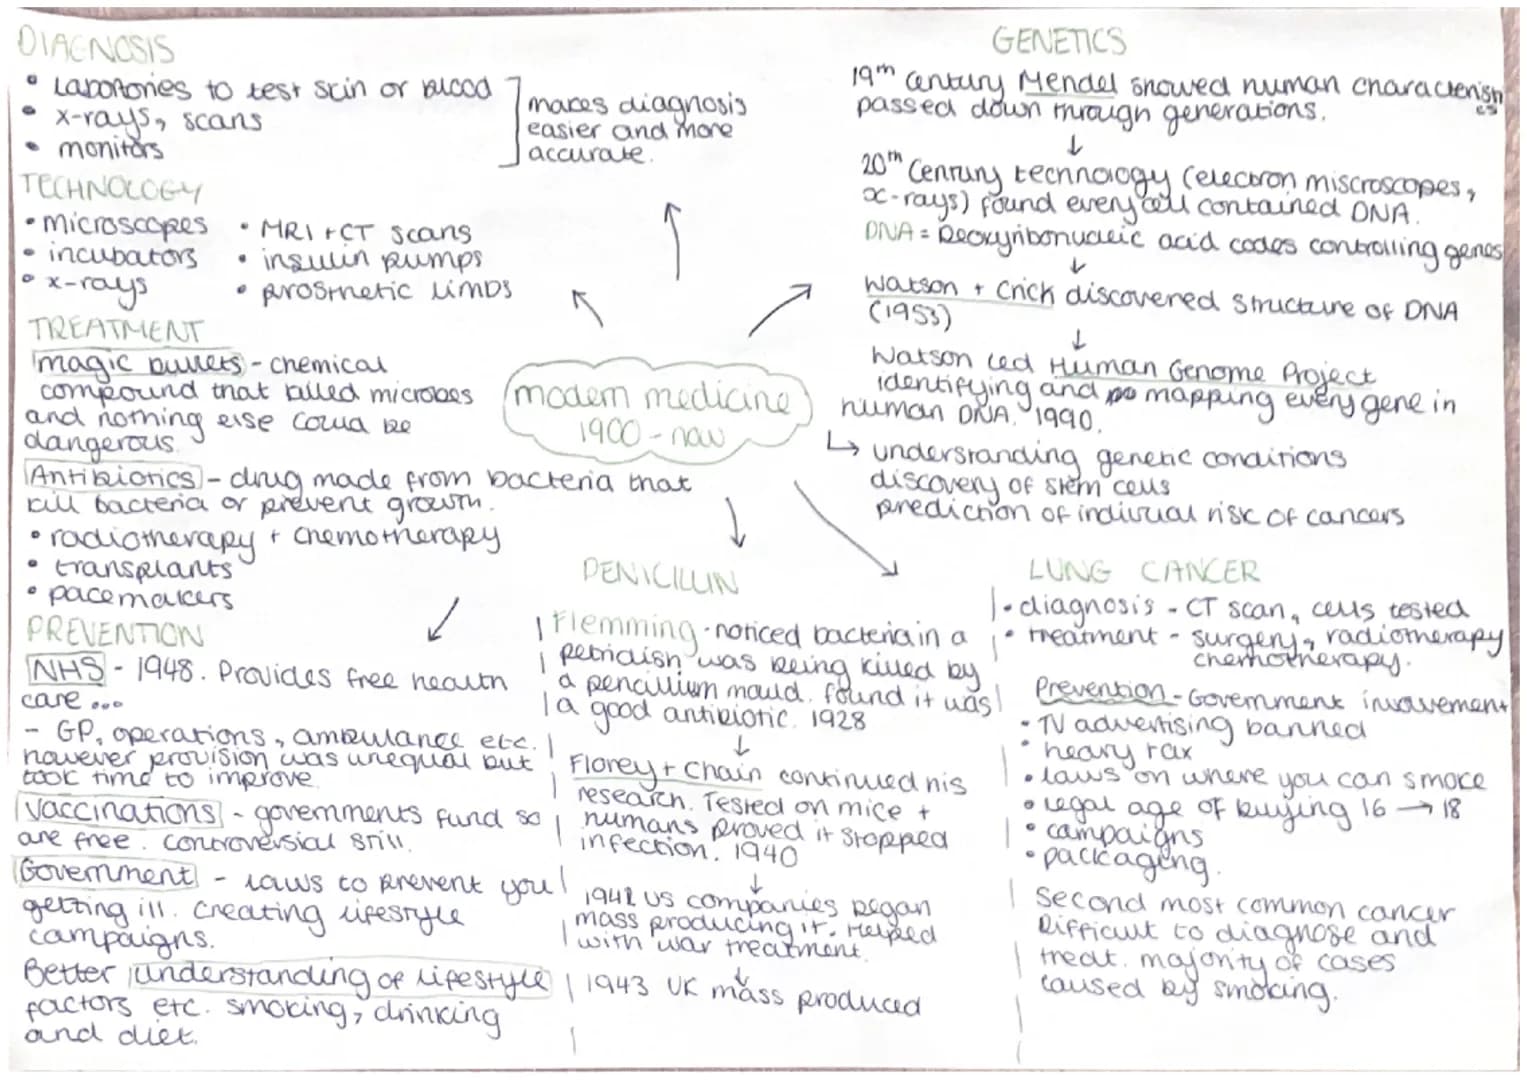 DIAGNOSIS
• Laboratories to test skin or blood
• x-rays, scans
• monitors
makes diagnosis
easier and more
accurate.
TECHNOLOGY
• microscopes
• incubators
• x-rays
• MRI + CT scans
• insulin pumps
• prosthetic limbs
TREATMENT
magic bullets - chemical
compound that killed microbes
and nothing else could be
dangerous.
Antibiotics - drug made from bacteria that
kill bacteria or prevent growth.
• radiotherapy + chemotherapy
• transplants
• pacemakers
PREVENTION
NHS - 1948. Provides free health
care ...
- GP, operations, ambulance etc.
however provision was unequal but
took time to improve.
Vaccinations - governments fund so
are free. controversial still.
Government - laws to prevent you
getting ill. creating lifestyle
campaigns.
Better understanding of lifestyle
factors etc. smoking, drinking
and diet.
modern medicine
1900 - now
GENETICS
19th Century Mendel showed human characteristics
passed down through generations.
↓
20th Century technology (electron miscroscopes,
x-rays) found every cell contained DNA.
DNA = Deoxyribonucleic acid codes controlling genes
↓
Watson + Crick discovered structure of DNA
(1953)
↓
Watson led Human Genome Project
identifying and mapping every gene in
human DNA. 1990.
↳ understanding genetic conditions
discovery of stem cells
prediction of indivual risk of cancers
PENICILLIN
Flemming - noticed bacteria in a
petridish was being killed by
a pencillium mould. found it was
a good antibiotic. 1928
↓
Florey + Chain continued his
research. Tested on mice +
humans proved it stopped
infection. 1940
↓
1942 US companies began
mass producing it. Helped
with war treatment.
↓
1943 UK mass produced
LUNG CANCER
• diagnosis - CT scan, cells tested
• treatment - surgery, radiotherapy
chemotherapy.
Prevention - Government involvement
• TV advertising banned
• heavy tax
• laws on where you can smoke
• legal age of buying 16 → 18
• campaigns
• packaging.
Second most common cancer
Difficult to diagnose and
treat. majority of cases
caused by smoking.